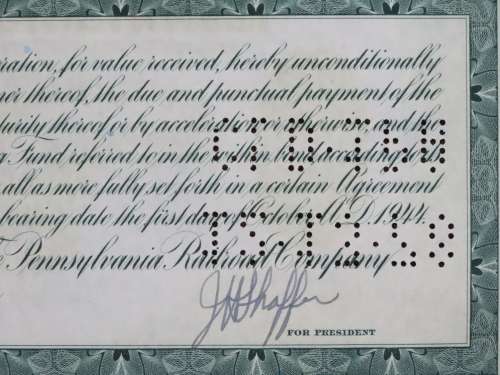 ration, for value received, hereby unconditionally
er thereof, the due and punctual payment of the
turity thereof or by acceleration or otherwise, and the
g Fund referred to in the within bond according to th
all as more fully set forth in a certain Agreement
bearing date the first day of October A.D. 1944.
e Pennsylvania Railroad Company
J H Shaffer
FOR PRESIDENT